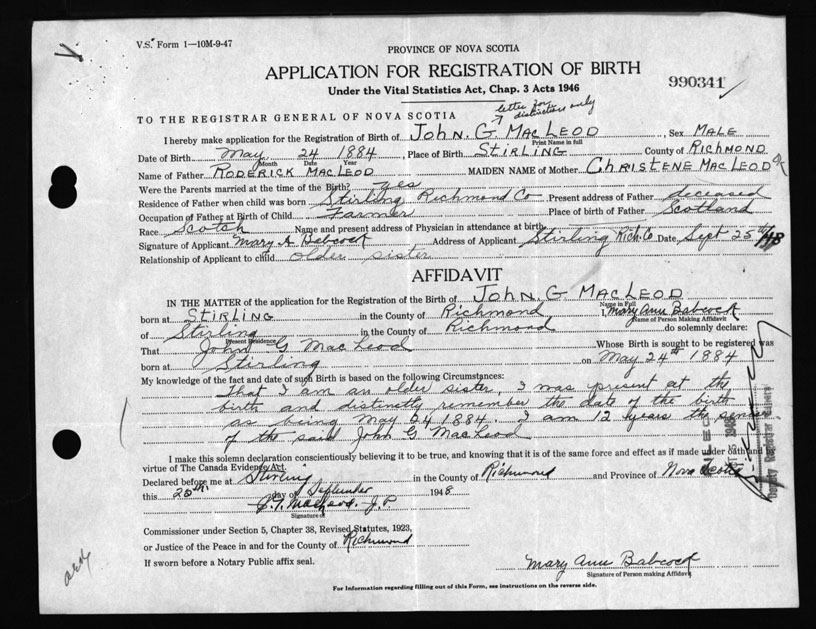 V.S. Form 1—10M-9-47
PROVINCE OF NOVA SCOTIA
APPLICATION FOR REGISTRATION OF BIRTH
Under the Vital Statistics Act, Chap. 3 Acts 1946
990341
letter for distinction only
TO THE REGISTRAR GENERAL OF NOVA SCOTIA
I hereby make application for the Registration of Birth of JOHN. G. MACLEOD, Sex MALE
Print Name in full
Date of Birth May 24 1884, Place of Birth STIRLING County of RICHMOND
Month Date Year
Name of Father RODERICK MACLEOD MAIDEN NAME of Mother CHRISTENE MACLEOD
Were the Parents married at time of the Birth? yes
Residence of Father when child was born Stirling Richmond Co Present address of Father deceased
Occupation of Father at Birth of Child Farmer Place of birth of Father Scotland
Race Scotch Name and present address of Physician in attendance at birth
Signature of Applicant Mary A Babcock Address of Applicant Stirling Rich. Co Date, Sept 25th/48
Relationship of Applicant to child older sister
AFFIDAVIT
IN THE MATTER of the application for the Registration of the Birth of JOHN G. MACLEOD
Name in Full
born at STIRLING in the County of Richmond I, Mary Ann Babcock
Name of Person Making Affidavit
of Stirling in the County of Richmond do solemnly declare:
Present Residence
That John G MacLeod Whose Birth is sought to be registered was
born at Stirling on May 24th 1884
My knowledge of the fact and date of such Birth is based on the following Circumstances:
That I am an older sister. I was present at the
birth and distinctly remember the date of the birth
as being May 24 1884. I am 12 years the senior
of the said John G MacLeod
I make this solemn declaration conscientiously believing it to be true, and knowing that it is of the same force and effect as if made under oath and by
virtue of The Canada Evidence Act.
Declared before me at Stirling in the County of Richmond and Province of Nova Scotia
this 25th day of September 1948
MacLeod. J.P
Signature of
Commissioner under Section 5, Chapter 38, Revised Statutes, 1923,
or Justice of the Peace in and for the County of Richmond
If sworn before a Notary Public affix seal.
Mary Ann Babcock
Signature of Person making Affidavit
For Information regarding filling out of this Form, see instructions on the reverse side.